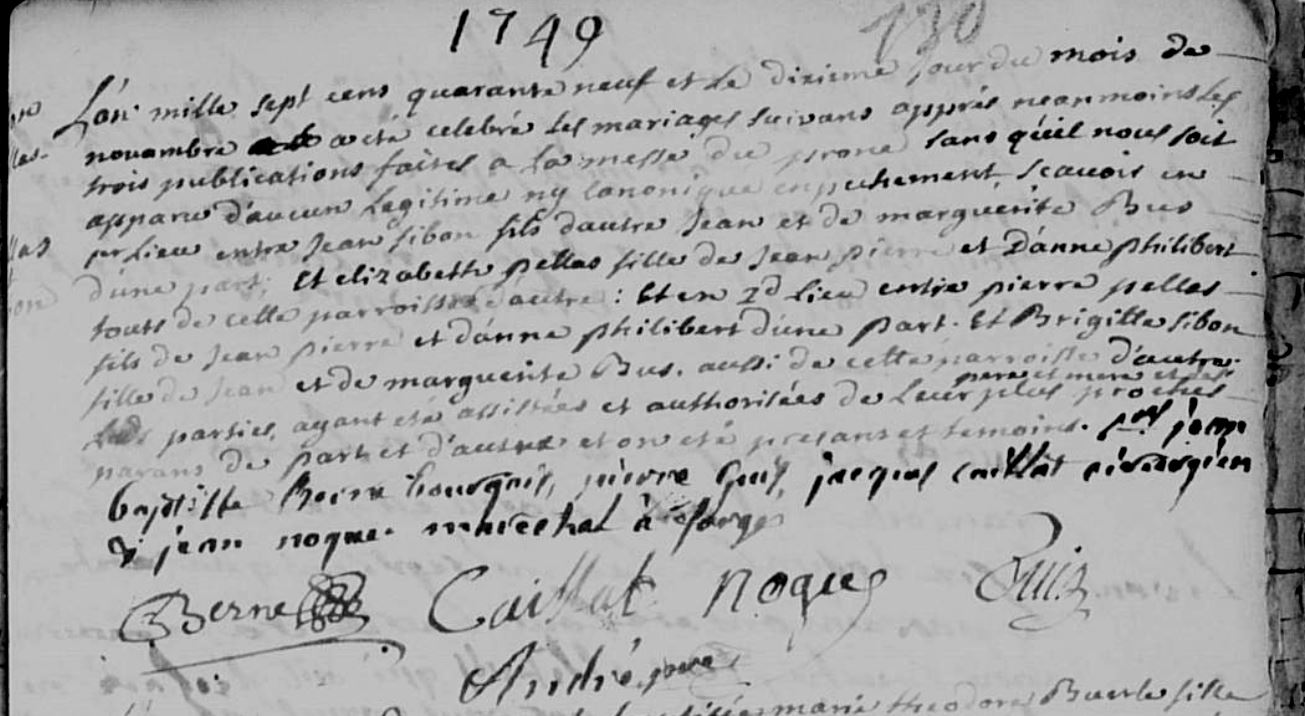 1749
130
L'an mille sept cens quarante neuf et le dixieme jour du mois de
novambre a eté celebré les mariages suivans apprés neanmoins les
trois publications faites a la messe du prone sans qu'il nous soit
apparu d'aucun legitime ny canonique enpechement, scavoir en
per lieu entre Jean Sibon fils d'autre Jean et de marguerite Bus
d'une part; Et elizabeth pellas fille de Jean pierre et d'anne philibert
touts de cette parroisse d'autre: Et en 2d lieu entre pierre pellas
fils de Jean pierre et d'anne philibert d'une part. Et Brigitte Sibon
fille de Jean et de marguerite Bus. aussi de cette parroisse d'autre.
pere et mere et des
parties, ayant eté assistées et authorisées de leur plus proches
parans de part et d'autre et on eté presans et temoins. jean
baptiste Berne bourgois, pierre jaques caillat
& jean noque marechal à forge
Berne Caillat noque
André, 
marie theodore fille